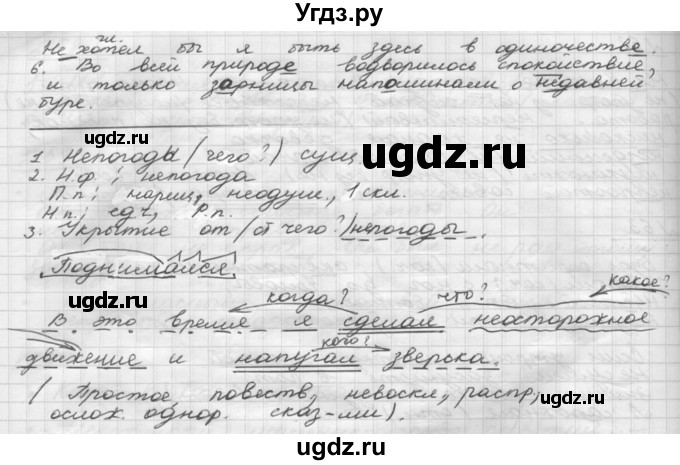 Угдз.ру
гл.
Не хотел бы я быть здесь в одиночестве.
6. Во всей природе водворилось спокойствие,
и только зарницы напоминали о недавней
буре.
ugdz.ru ugdz.ru
1 Непогоды (чего?) сущ
2. Н.ф; непогода
П.п; нариц., неодуш., 1 скл.
Н п; ед.ч, Р.п.
3. Укрытие от (от чего?) непогоды.
ugdz.ru
Поднимаяся,
ugdz.ru
когда? что? какое?
В это время я сделал неосторожное
кого?
движение и напугал зверька.
ugdz.ru
(Простое, повеств, невоскл, распр,
ослож. однор. сказ-ми).
ugdz.ru